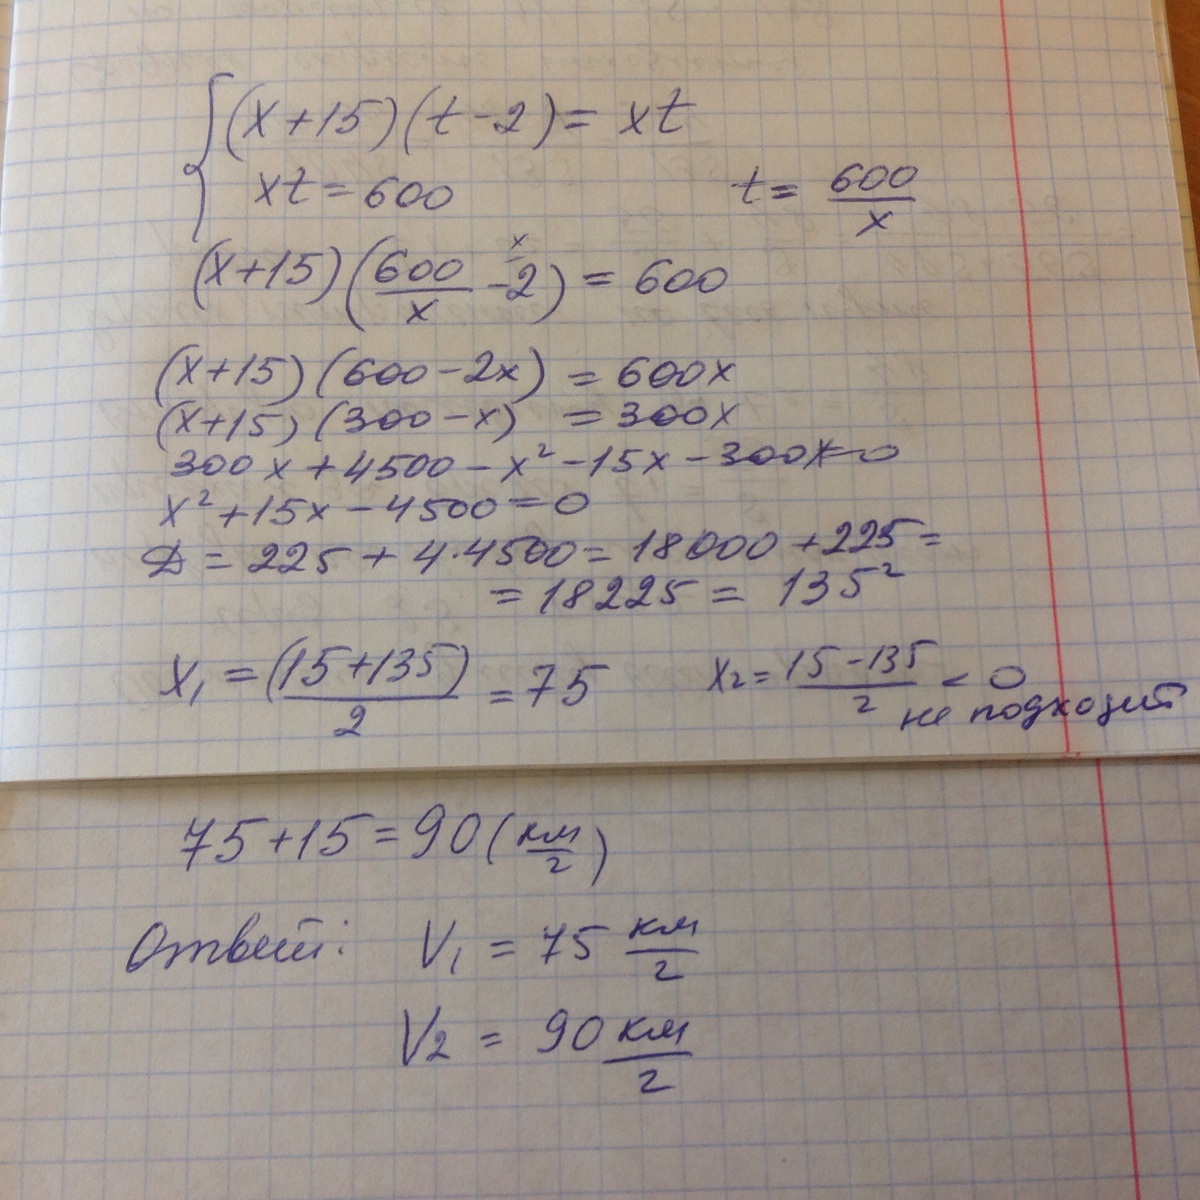 (x+15)(t-2)= xt
xt=600 t= 600/x
(x+15)(600/x -2)=600
(x+15)(600-2x) =600x
(x+15)(300-x) =300x
300x+4500-x²-15x-300x=0
x²+15x-4500=0
D=225+4·4500=18000+225=
=18225= 135²
x₁=(15+135)/2=75 x₂=15-135/2<0
не подходит
75+15=90(км/г)
Ответ: V₁=75 км/г
V₂ = 90 км/г